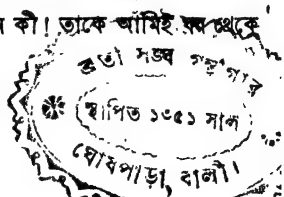 কী! তাকে আমিই থেকে
ব্রতী সঙ্ঘ গ্রন্থাগার
স্থাপিত ১৩৫১ সাল
ঘোষপাড়া, বালী।